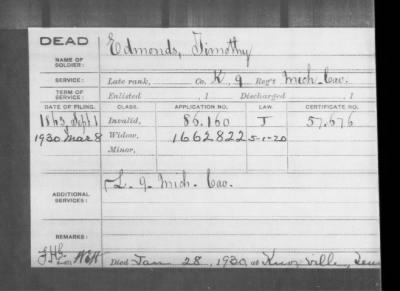 DEAD
Edmonds, Timothy
NAME OF SOLDIER:
SERVICE: Late rank, Co. K, 9 Reg't Mich. Cav.
TERM OF SERVICE: Enlisted , 1 Discharged , 1
DATE OF FILING. CLASS. APPLICATION NO. LAW. CERTIFICATE NO.
1863, Sept 1 Invalid, 86.160 J 57,676
1930 Mar 8 Widow, 1662822 5-1-20
Minor,
ADDITIONAL SERVICES: L. 9 Mich. Cav.
REMARKS:
Died Jan 28, 1930 at Knoxville, Tenn